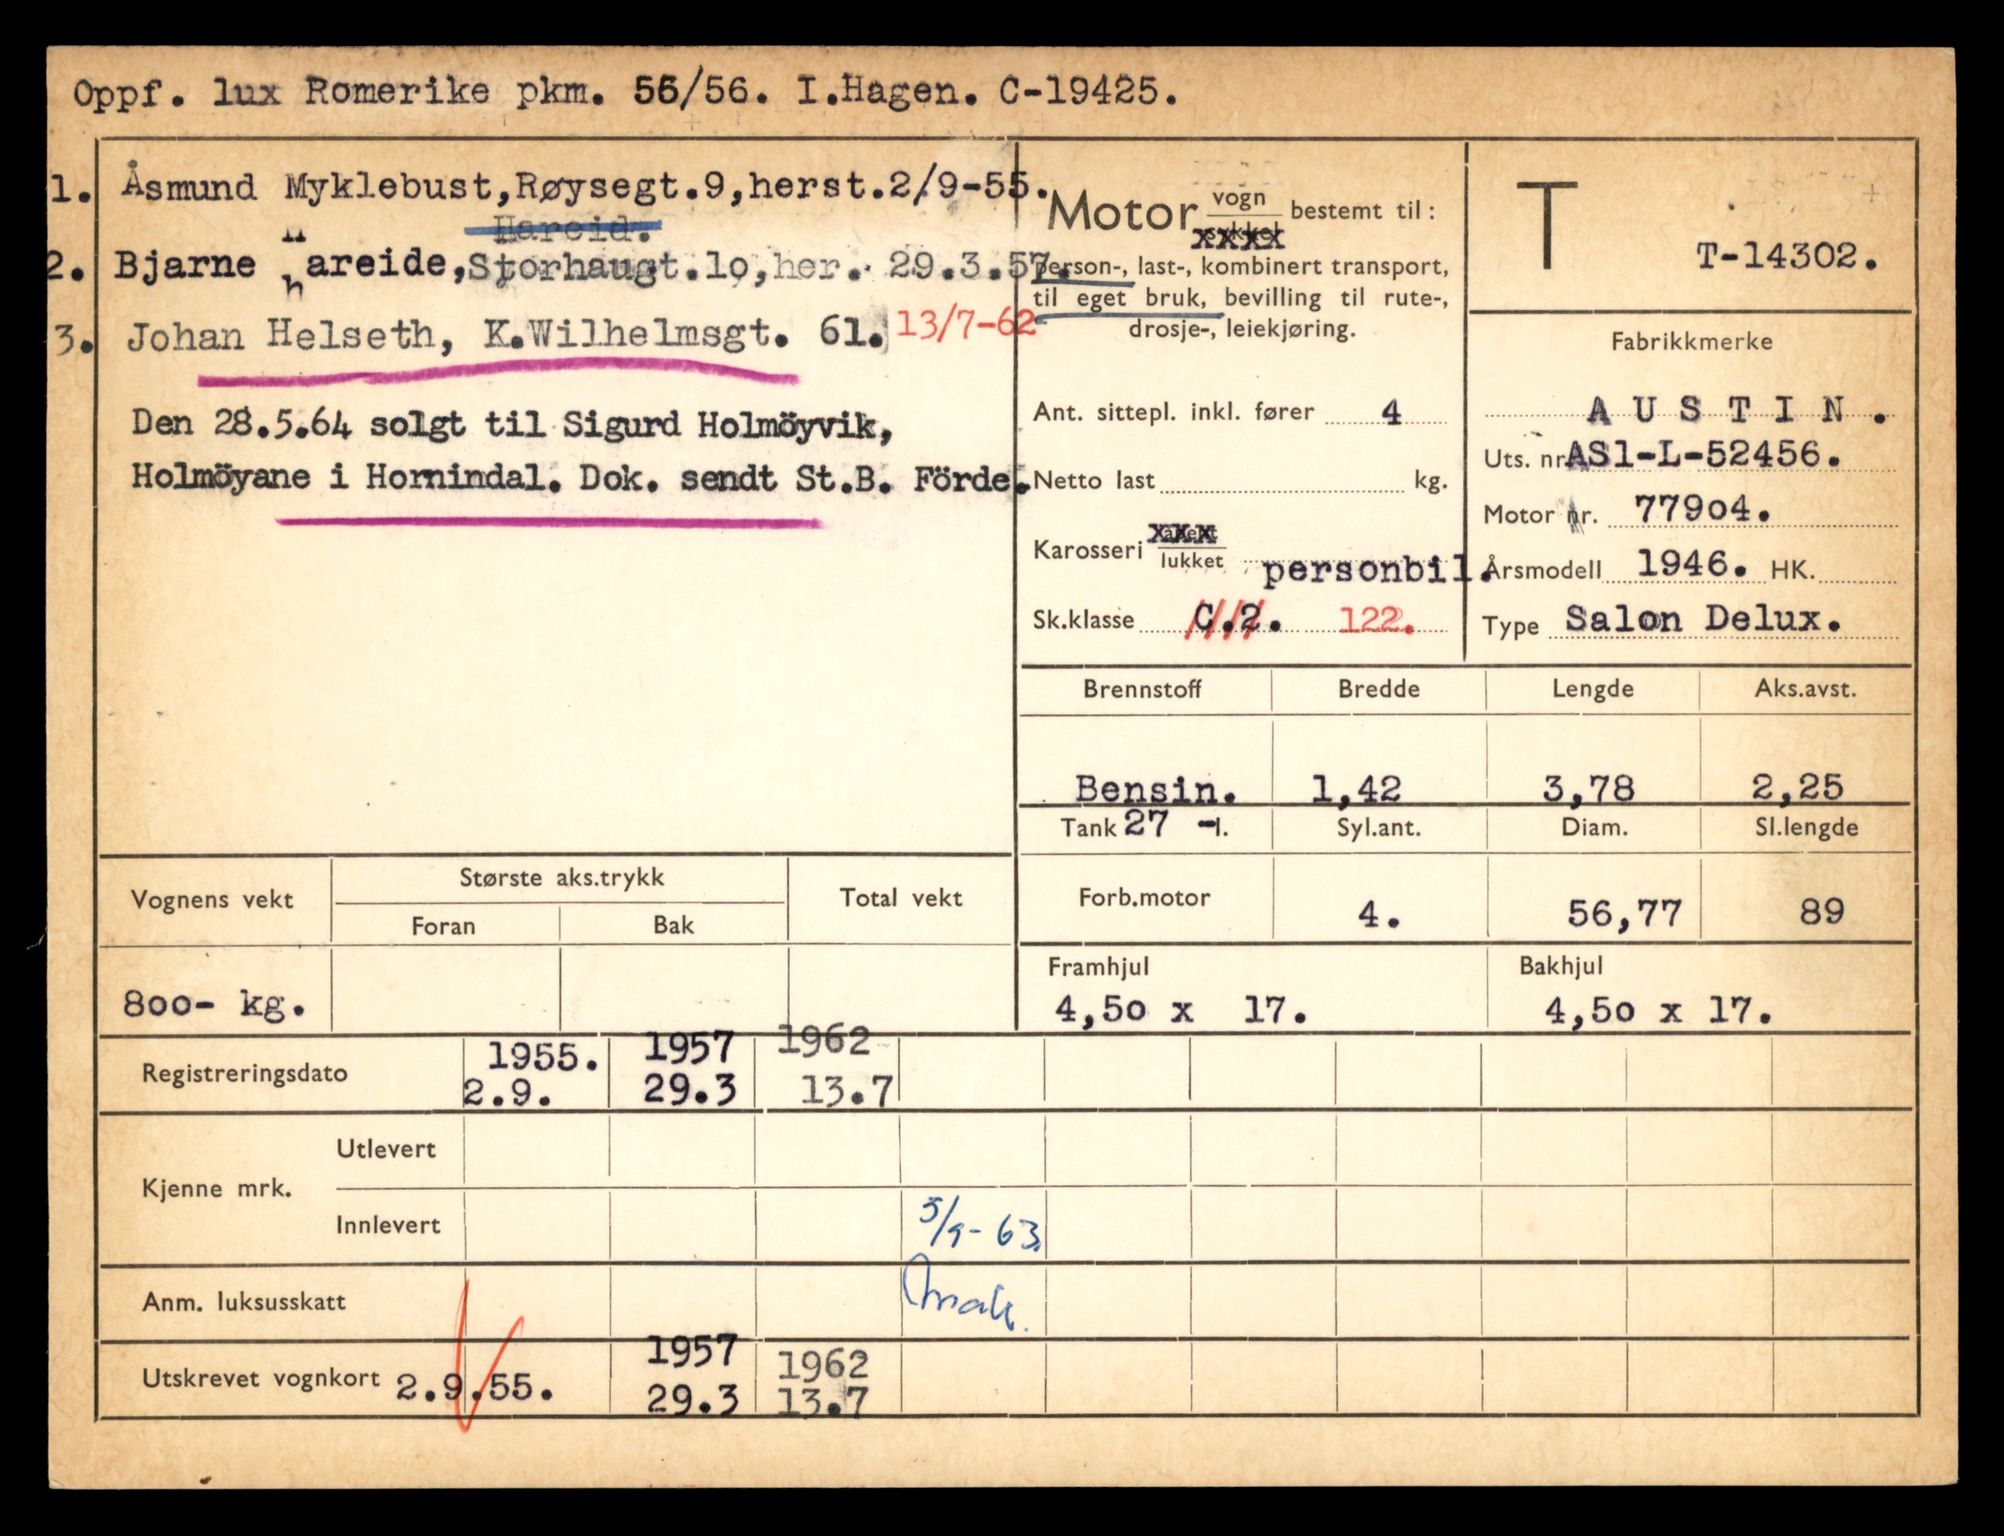 Oppf. lux Romerike pkm. 55/56. I.Hagen. C-19425.
1. Åsmund Myklebust,Røysegt.9,herst.2/9-55.
Hareid.
2. Bjarne Hareide,Storhaugt.lo,her. 29.3.57.
3. Johan Helseth, K.Wilhelmsgt. 61. 13/7-62
Den 28.5.64 solgt til Sigurd Holmöyvik,
Holmöyane i Hornindal. Dok. sendt St.B. Förde.
Motor vogn bestemt til:
sykkel xxxx
person-, last-, kombinert transport,
til eget bruk, bevilling til rute-,
drosje-, leiekjøring.
Ant. sittepl. inkl. fører 4
Netto last kg.
Karosseri åpent xxx
lukket personbil.
Sk.klasse C.2. 122.
T T-14302.
Fabrikkmerke
AUSTIN.
Uts. nr. AS1-L-52456.
Motor nr. 779o4.
Årsmodell 1946. HK.
Type Salon Delux.
Brennstoff Bredde Lengde Aks.avst.
Bensin. 1,42 3,78 2,25
Tank 27 -l. Syl.ant. Diam. Sl.lengde
Forb.motor 4. 56,77 89
Framhjul Bakhjul
4,5o x 17. 4,5o x 17.
Vognens vekt Største aks.trykk Total vekt
Foran Bak
8oo- kg.
Registreringsdato 1955. 1957 1962
2.9. 29.3 13.7
Kjenne mrk. Utlevert
Innlevert 5/9-63.
Anm. luksusskatt
Utskrevet vognkort 2.9.55. 1957 1962
29.3 13.7